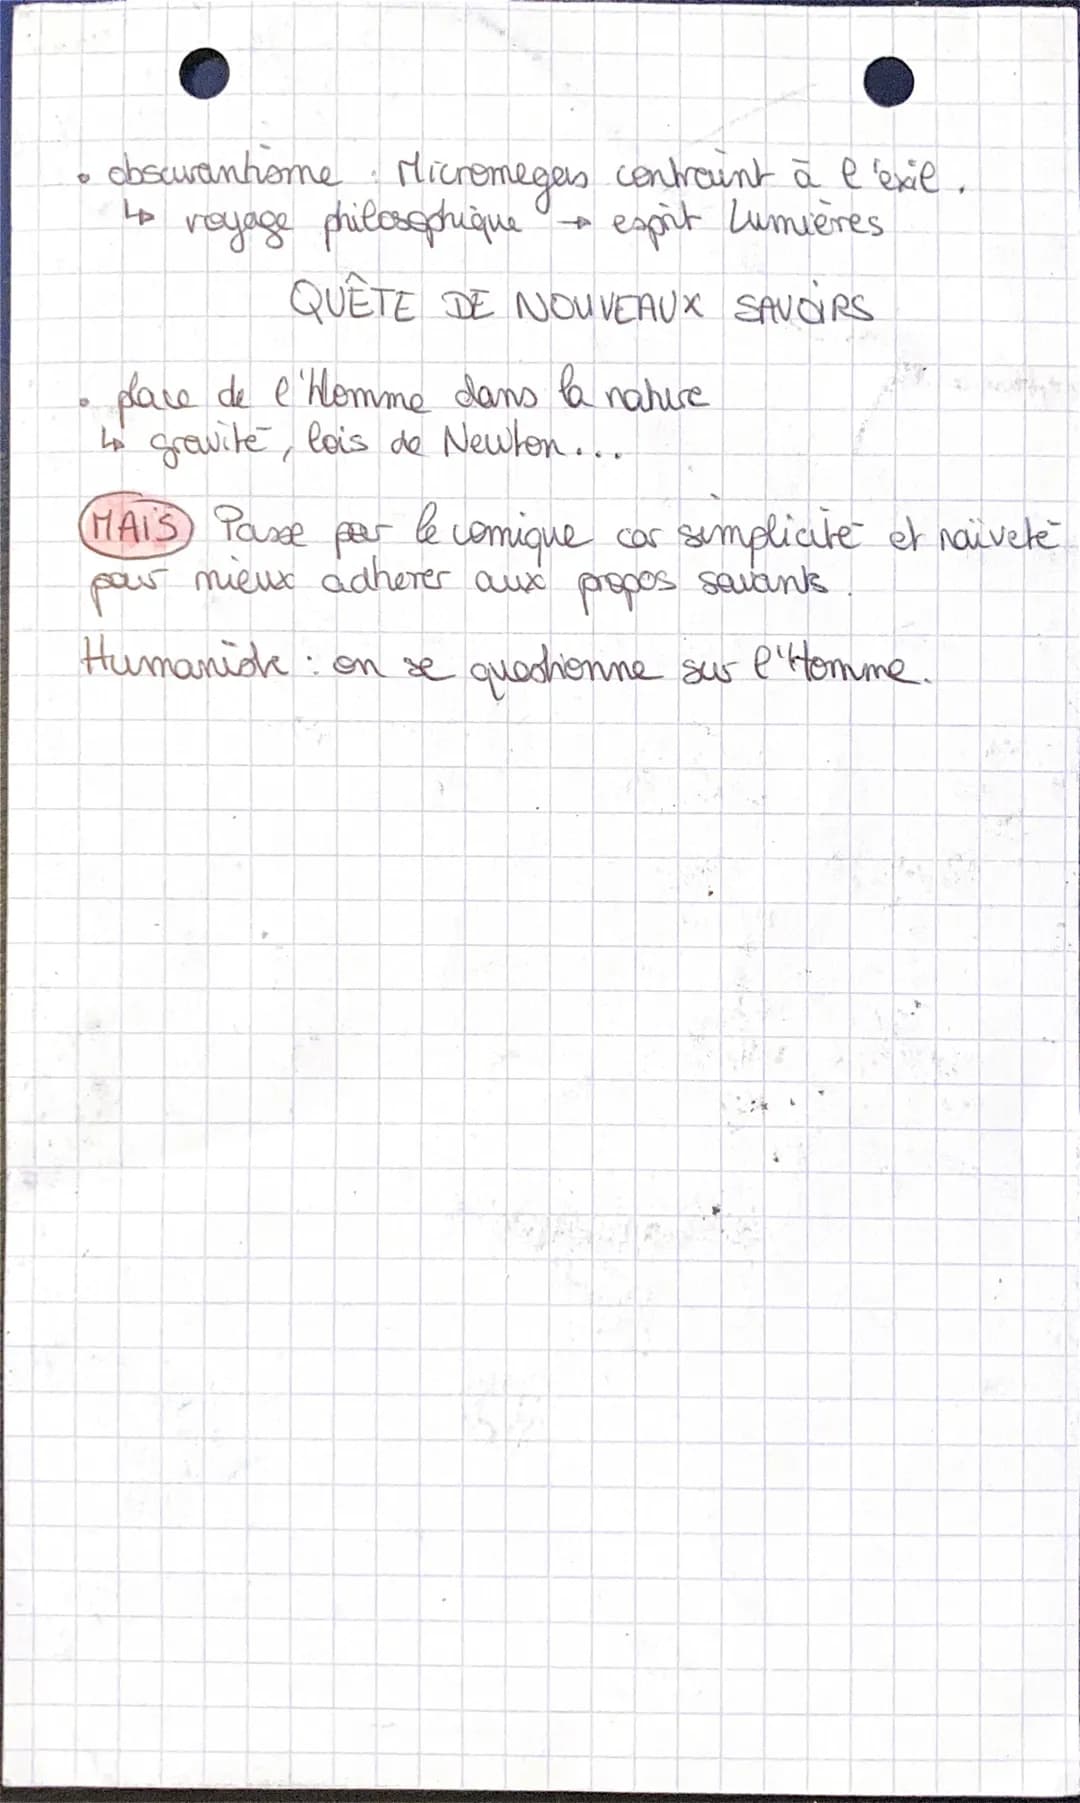 • obscurantisme : Micromegas contraint à l'exil.
↳ voyage philosophique → esprit Lumières
QUÊTE DE NOUVEAUX SAVOIRS
• place de l'Homme dans la nature
↳ gravité, lois de Newton...
MAIS Passe par le comique car simplicité et naïveté
pour mieux adhérer aux propos savants.
Humaniste : on se questionne sur l'Homme.